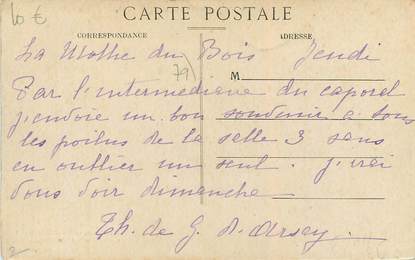 10 €
CARTE POSTALE
CORRESPONDANCE ADRESSE
La Mothe du Bois Jeudi
79)
M
Par l'intermediaire du caporal
j'envoie un bon souvenir a tous
les poilus de la selle 3 sans
en oublier un seul. j'irai
vous voir dimanche
Th. de G. d'Arsay
2